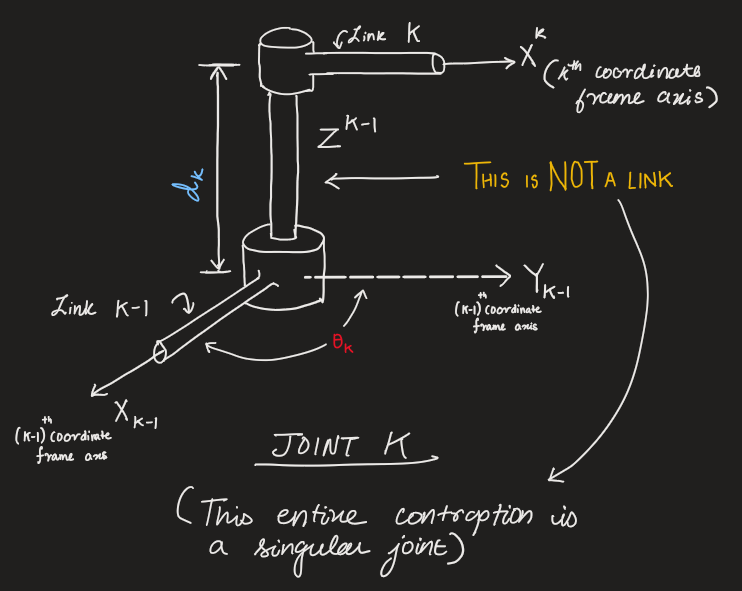 Link K
X^K
(Kth coordinate
frame axis)
Z^K-1
d_K
THIS IS NOT A LINK
Y_K-1
(K-1)th coordinate
frame axis
Link K-1
θ_K
X_K-1
(K-1)th coordinate
frame axis
JOINT K
(This entire contraption is
a singular joint)